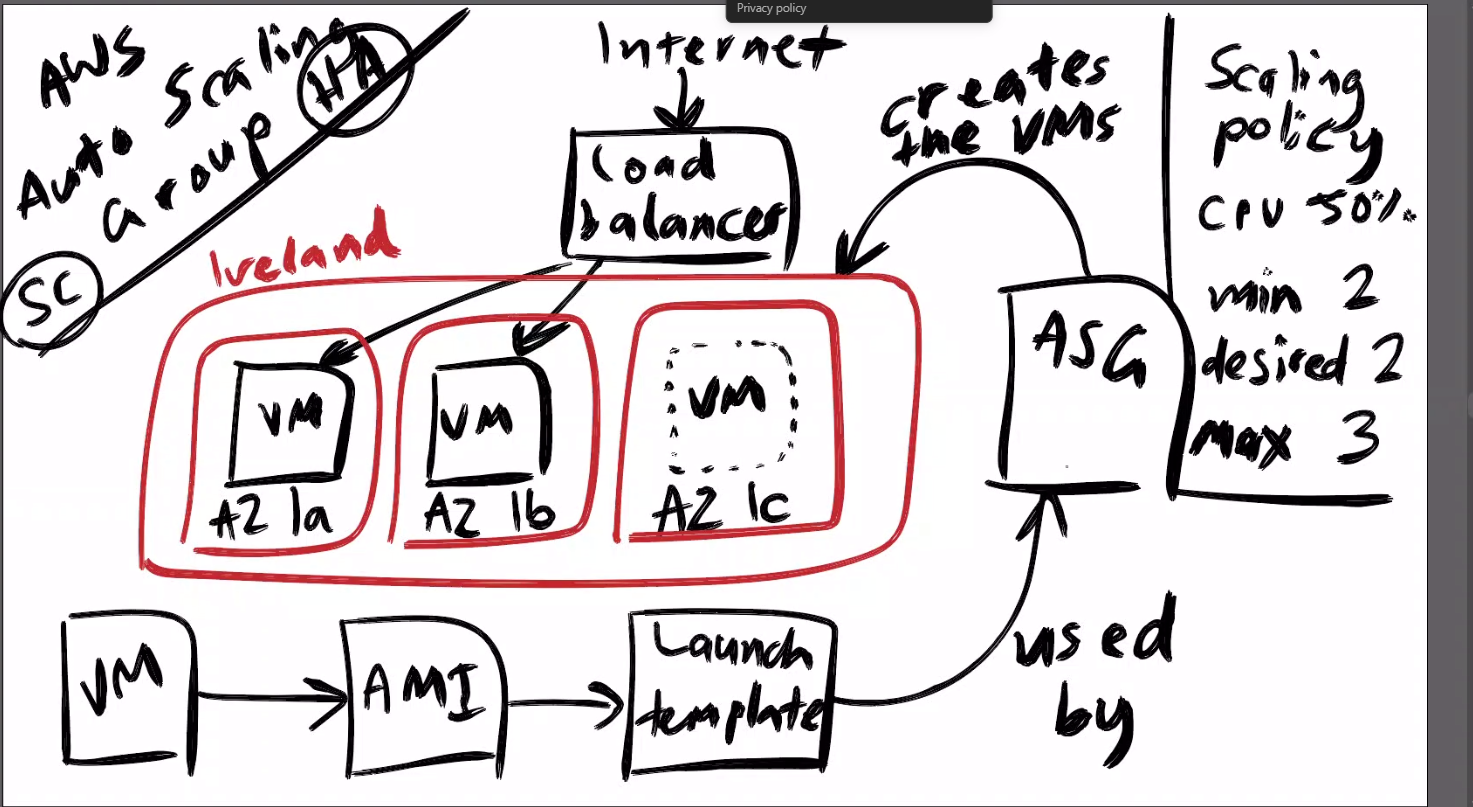 Privacy policy
AWS
Auto Scaling
Group
HA
SC
Internet
Load
balancer
creates
the VMs
Scaling
policy
CPU 50%
min 2
desired 2
max 3
Ireland
VM
AZ 1a
VM
AZ 1b
VM
AZ 1c
ASG
VM
AMI
Launch
template
used
by